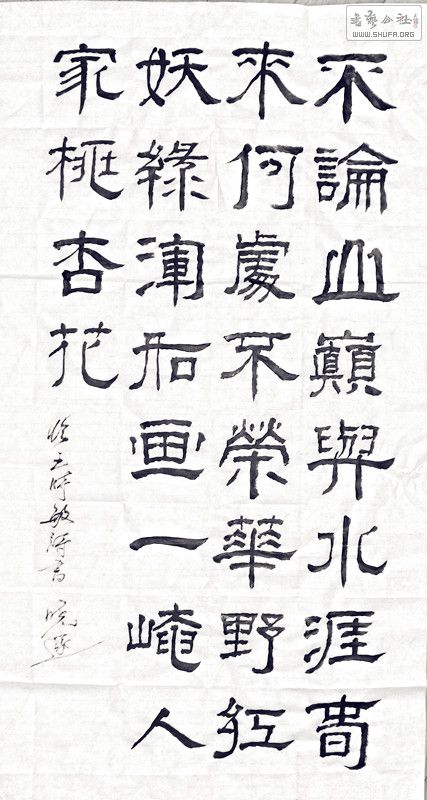 書藝公社
WWW.SHUFA.ORG
不論山巔與水涯春
來何處不榮華野紅
妖綠渾如画一崦人
家桃杏花
王時敏